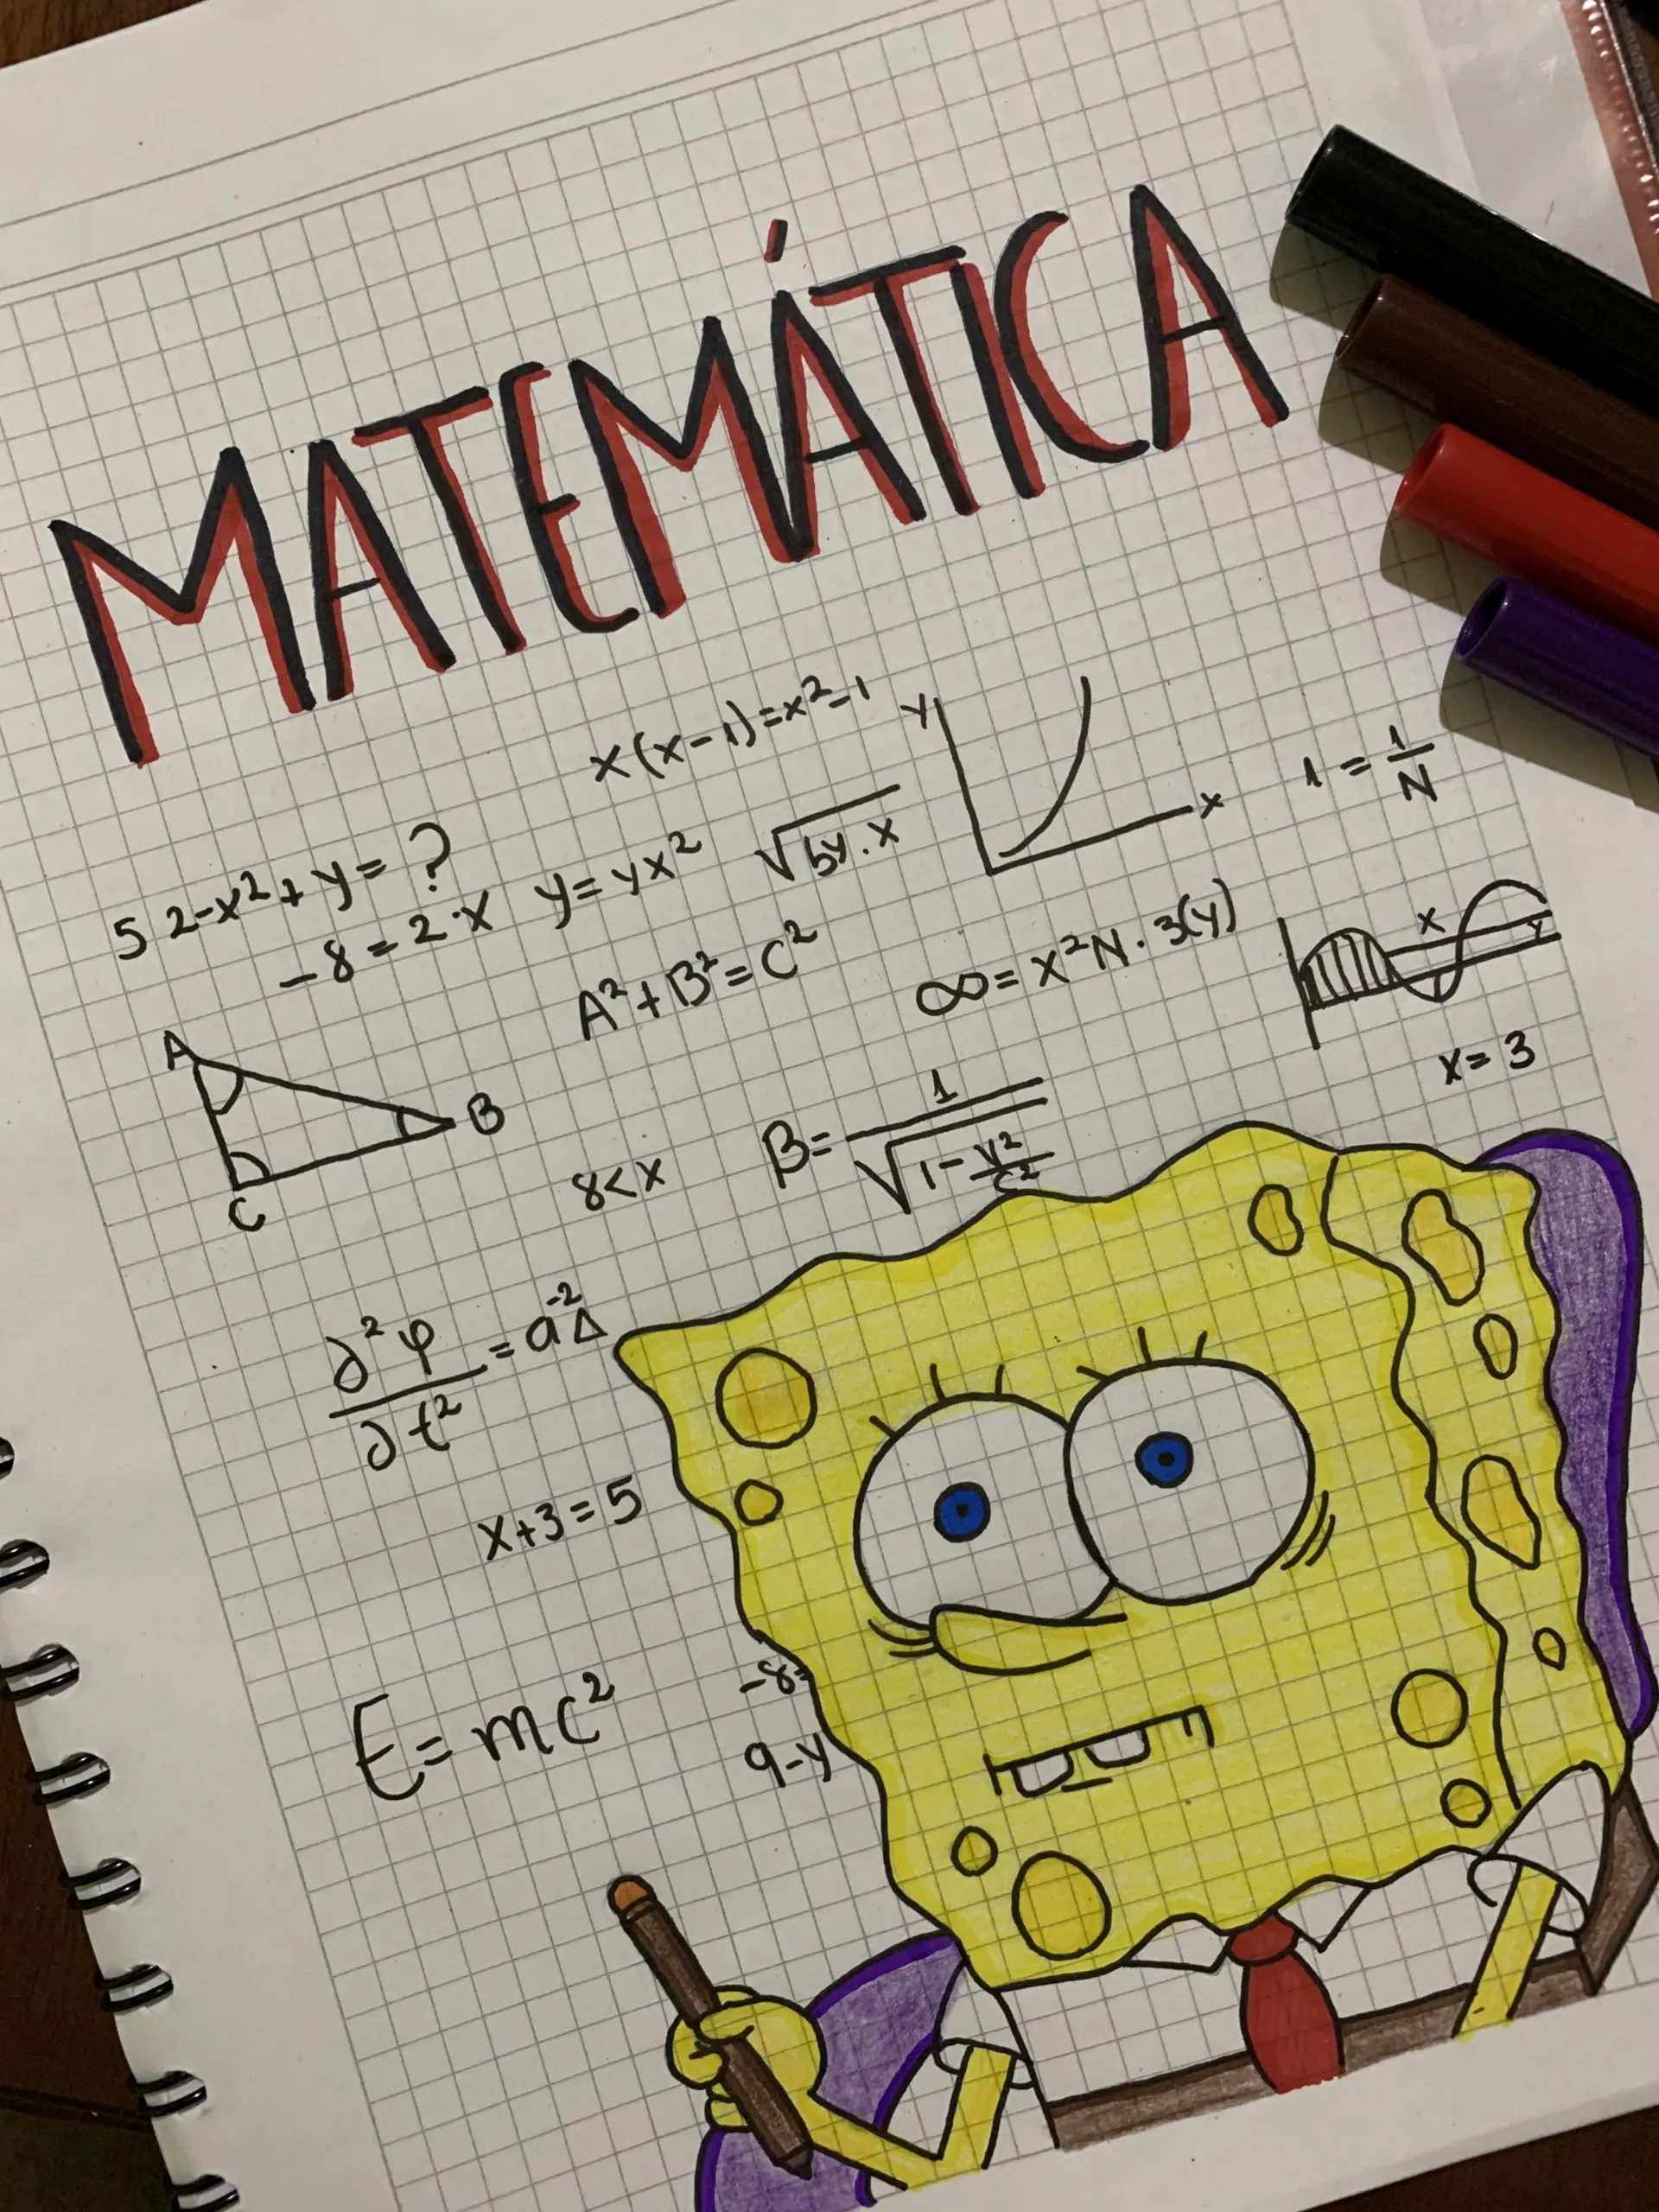 MATEMÁTICA
x(x-1)=x²-1
y
x
1=1/N
5 2-x²+y=?
-8=2·x
y=yx²
√5y.x
A²+B²=C²
∞=x²N·3(y)
x
y
x=3
A
B
C
8<x
β=1/√1-v²/c²
∂²φ/∂t²=a⁻²Δ
x+3=5
E=mc²
-8=
9-y